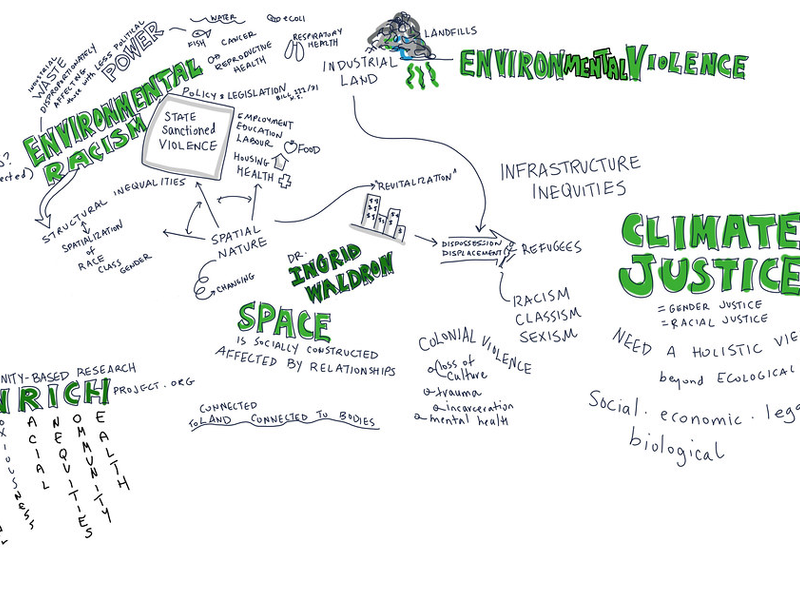 INDUSTRIAL
WASTE
DISPROPORTIONATELY
AFFECTING
those with LESS POLITICAL
POWER
WATER
ecoli
FISH
CANCER
REPRODUCTIVE
HEALTH
RESPIRATORY
HEALTH
LANDFILLS
INDUSTRIAL
LAND
ENVIRONMENTAL VIOLENCE
ENVIRONMENTAL
RACISM
POLICY & LEGISLATION
STATE
Sanctioned
VIOLENCE
EMPLOYMENT
EDUCATION
LABOUR
FOOD
HOUSING
HEALTH
STRUCTURAL INEQUALITIES
SPATIALIZATION
of
RACE
CLASS
GENDER
SPATIAL
NATURE
CHANGING
"REVITALIZATION"
$$
DISPOSSESSION
DISPLACEMENT
REFUGEES
RACISM
CLASSISM
SEXISM
INFRASTRUCTURE
INEQUITIES
DR.
INGRID
WALDRON
SPACE
IS SOCIALLY CONSTRUCTED
AFFECTED BY RELATIONSHIPS
CONNECTED
TO LAND CONNECTED TO BODIES
COLONIAL VIOLENCE
loss of
culture
trauma
incarceration
mental health
CLIMATE
JUSTICE
= GENDER JUSTICE
= RACIAL JUSTICE
NEED A HOLISTIC VIE
beyond ECOLOGICAL
Social. economic. lega
biological
NITY-BASED RESEARCH
NRICH PROJECT.ORG
RACIAL
INEQUITIES
COMMUNITY
HEALTH